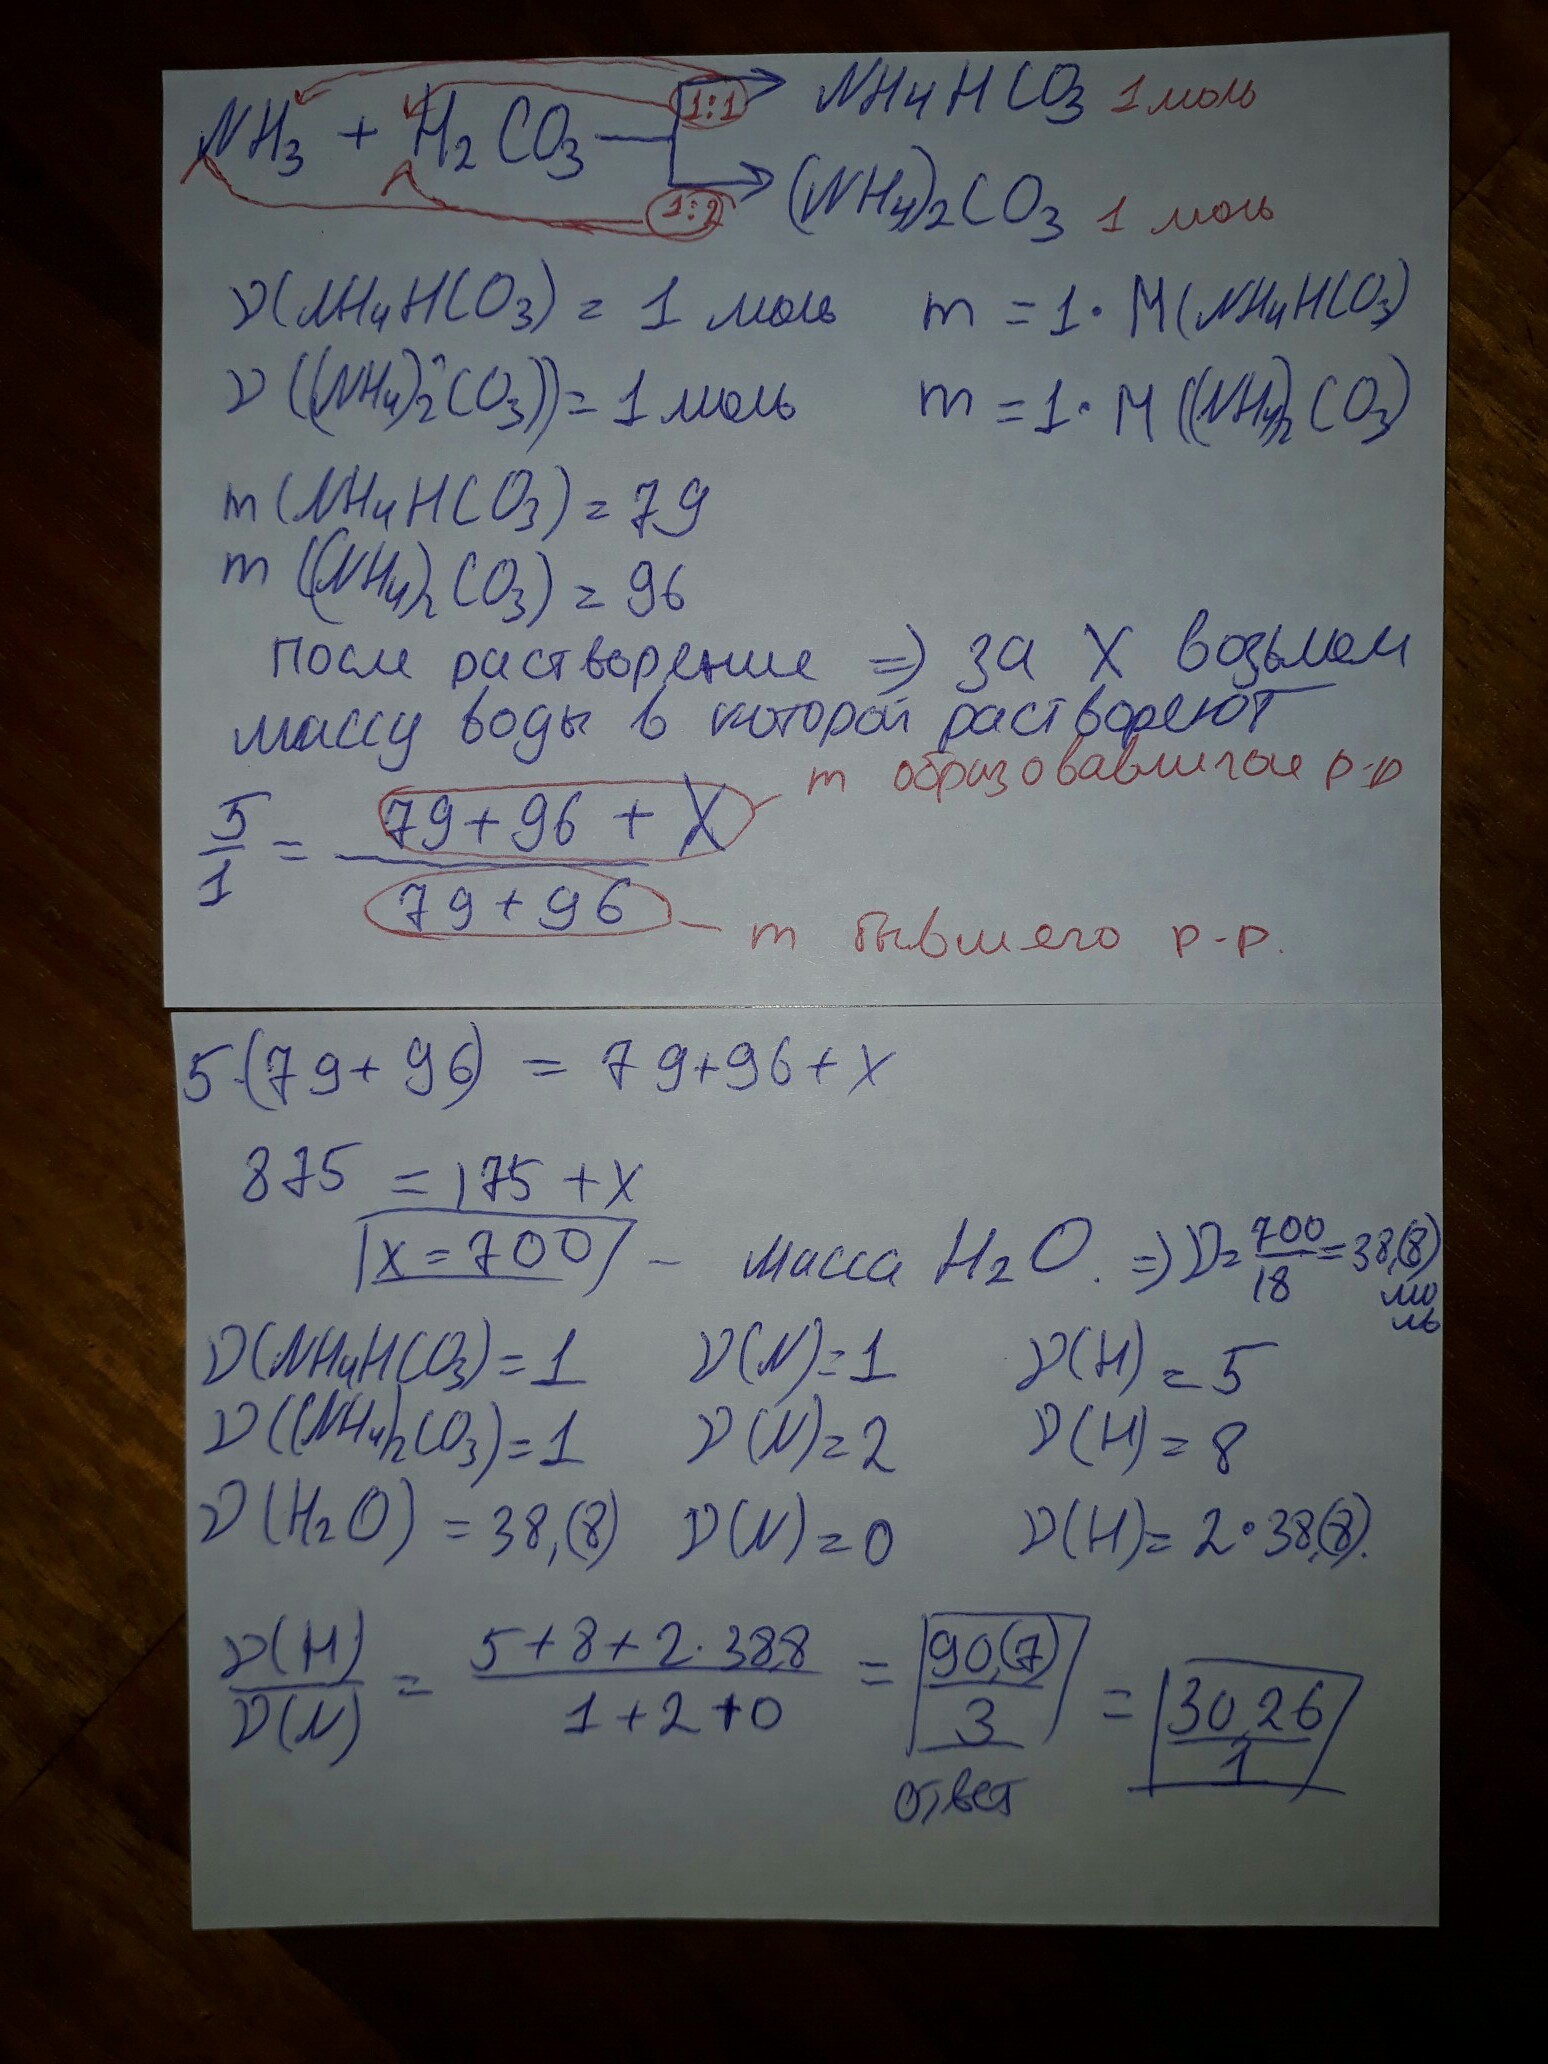 NH3 + H2CO3 1:1 NH4HCO3 1 моль
1:2 (NH4)2CO3 1 моль
ν(NH4HCO3) = 1 моль m = 1· M(NH4HCO3)
ν((NH4)2CO3)) = 1 моль m = 1· M((NH4)2CO3)
m(NH4HCO3) = 79
m((NH4)2CO3) = 96
после растворение => за X возьмем
массу воды в которой раствореют
5/1 = (79+96+X)/(79+96)
m образовавшигое р-р
m бывшего р-р.
5·(79+96) = 79+96+x
875 = 175 + x
x = 700 – масса H2O. => ν = 700/18 = 38,(8) моль
ν(NH4HCO3) = 1 ν(N) = 1 ν(H) = 5
ν((NH4)2CO3) = 1 ν(N) = 2 ν(H) = 8
ν(H2O) = 38,(8) ν(N) = 0 ν(H) = 2·38,(8).
ν(H)/ν(N) = (5+8+2·38,8)/(1+2+0) = 90,(7)/3 = 30,26/1
ответ